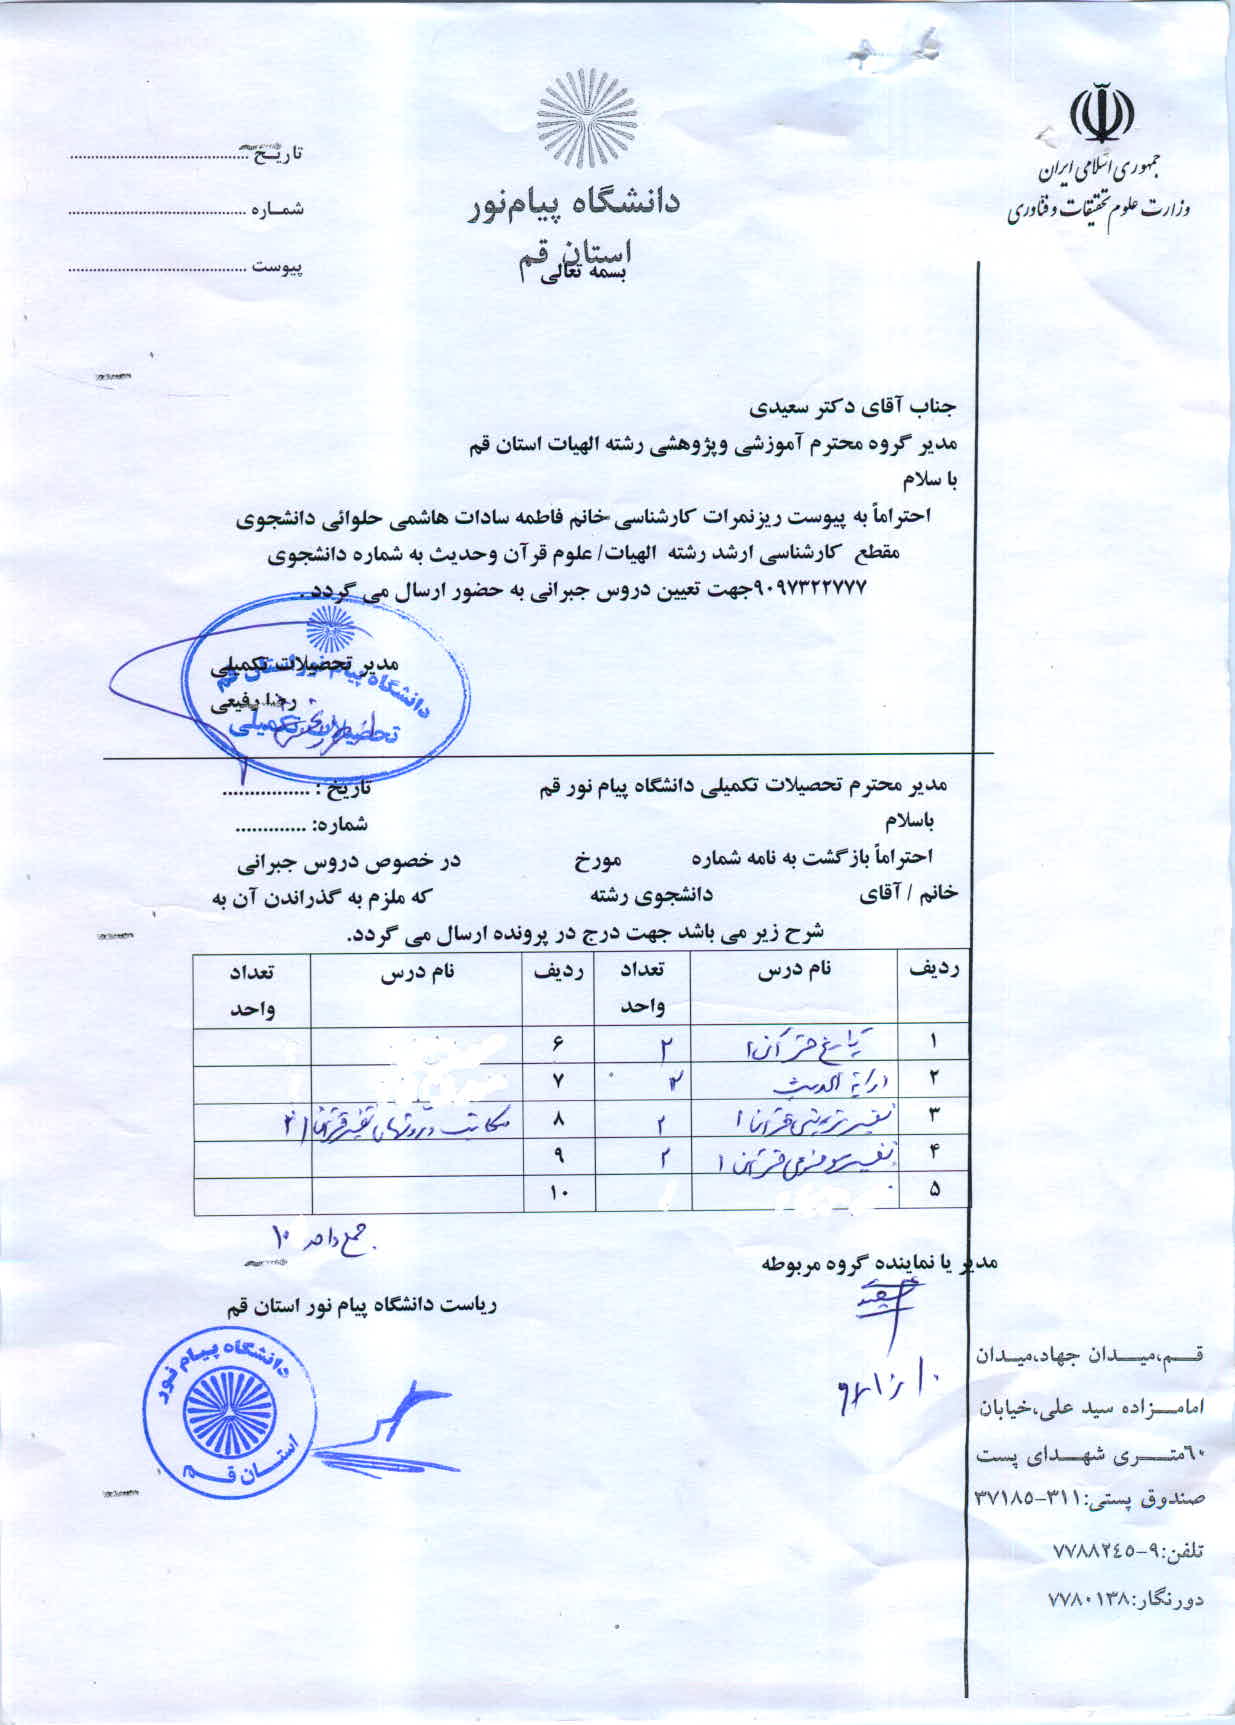 جمهوری اسلامی ایران
وزارت علوم تحقیقات و فناوری
دانشگاه پیام‌نور
استان قم
بسمه تعالی
تاریخ ........................................
شماره ........................................
پیوست ........................................
جناب آقای دکتر سعیدی
مدیر گروه محترم آموزشی وپژوهشی رشته الهیات استان قم
با سلام
احتراماً به پیوست ریزنمرات کارشناسی خانم فاطمه سادات هاشمی حلوائی دانشجوی
مقطع کارشناسی ارشد رشته الهیات/ علوم قرآن وحدیث به شماره دانشجوی
۹۰۹۷۳۲۲۷۷۷جهت تعیین دروس جبرانی به حضور ارسال می گردد .
مدیر تحصیلات تکمیلی
رضا رفیعی
دانشگاه پیام نور استان قم
تحصیلات تکمیلی
مدیر محترم تحصیلات تکمیلی دانشگاه پیام نور قم تاریخ : ................
باسلام شماره: .............
احتراماً بازگشت به نامه شماره مورخ در خصوص دروس جبرانی
خانم / آقای دانشجوی رشته که ملزم به گذراندن آن به
شرح زیر می باشد جهت درج در پرونده ارسال می گردد.
ردیف نام درس تعداد واحد ردیف نام درس تعداد واحد
۱ تاریخ قرآن ۱ ۲ ۶
۲ درایة الحدیث ۲ ۷
۳ تفسیر ترتیبی قرآن ۱ ۲ ۸ مکاتب و روشهای تفسیر قرآن ۱ ۲
۴ تفسیر موضوعی قرآن ۱ ۲ ۹
۵ ۱۰
جمع واحد ۱۰
مدیر یا نماینده گروه مربوطه
ریاست دانشگاه پیام نور استان قم
دانشگاه پیام نور
استان قم
قم،میدان جهاد،میدان
امامزاده سید علی،خیابان
٦٠متری شهدای پست
صندوق پستی:٣١١-٣٧١٨٥
تلفن:٩-٧٧٨٨٢٤٥
دورنگار:٧٧٨٠١٣٨